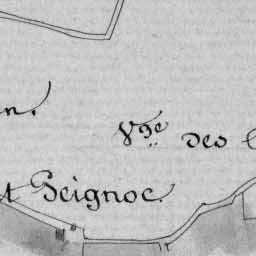 n.
Vge des
t Peignoc.